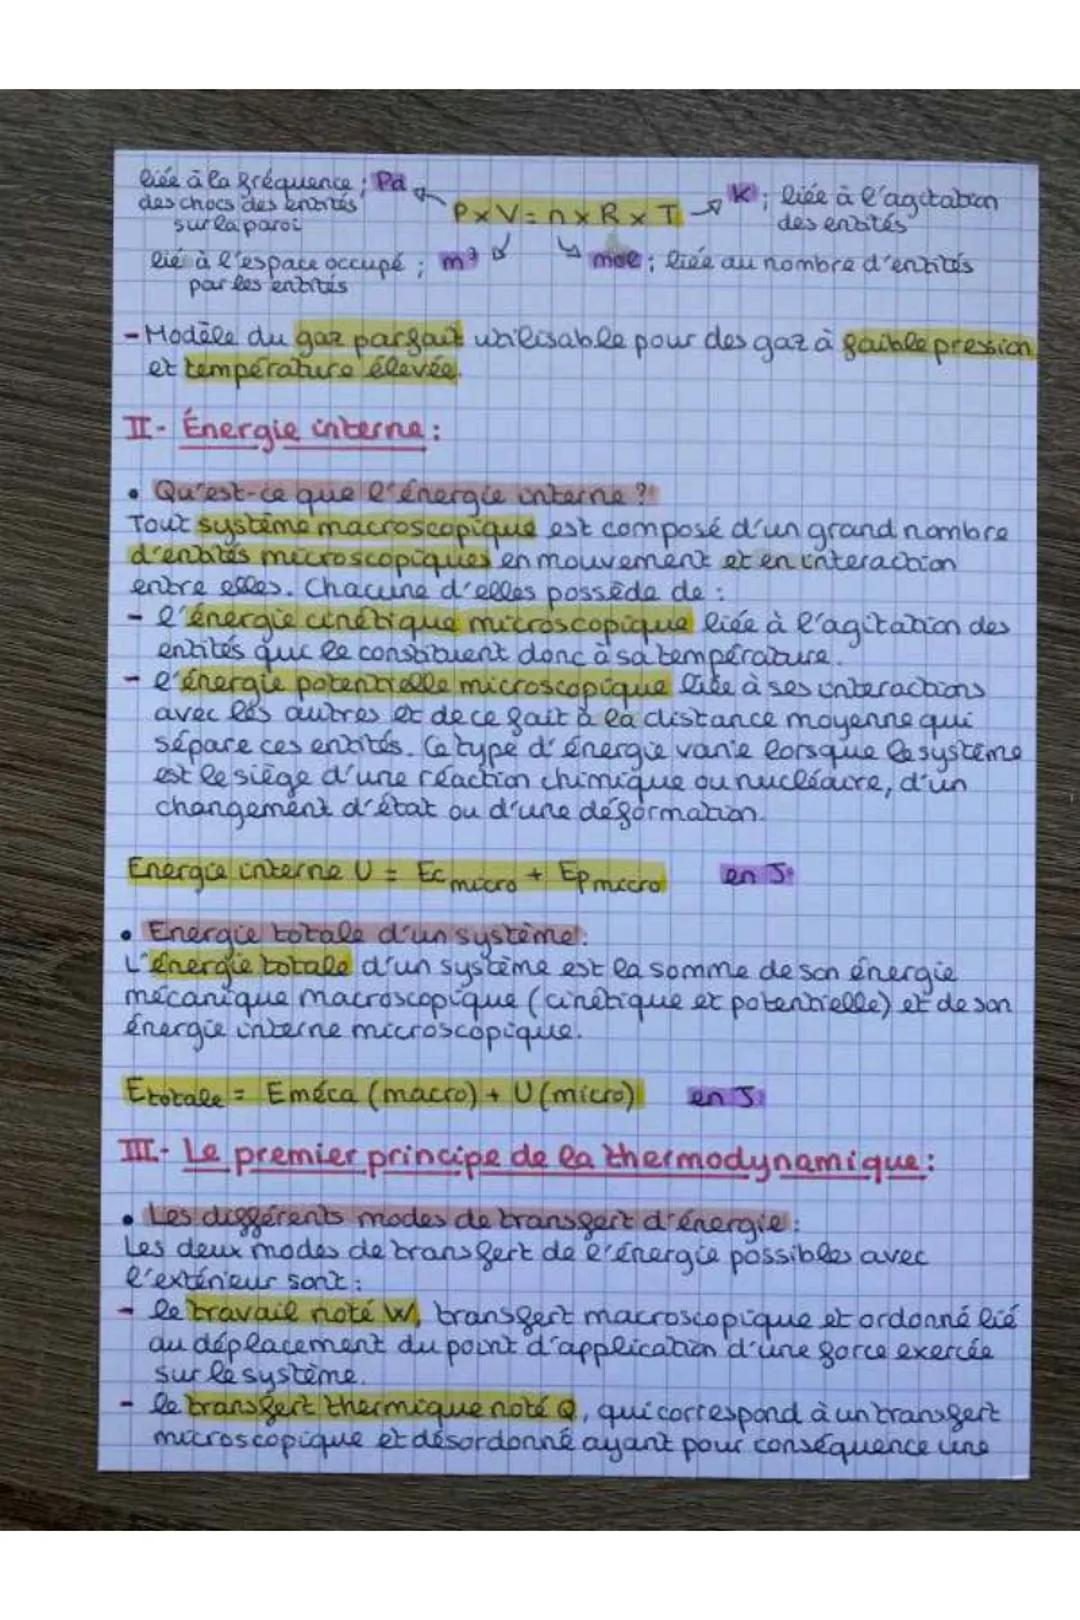 liée à la fréquence ; Pa
des chocs des entités
sur la paroi
P x V = n x R x T
K ; liée à l'agitation
des entités
lié à l'espace occupé ; m³
par les entités
mol ; liée au nombre d'entités
- Modèle du gaz parfait utilisable pour des gaz à faible pression
et température élevée.
II- Énergie interne :
• Qu'est-ce que l'énergie interne ?
Tout système macroscopique est composé d'un grand nombre
d'entités microscopiques en mouvement et en interaction
entre elles. Chacune d'elles possède de :
- l'énergie cinétique microscopique liée à l'agitation des
entités qui le constituent donc à sa température.
- l'énergie potentielle microscopique liée à ses interactions
avec les autres et de ce fait à la distance moyenne qui
sépare ces entités. Ce type d'énergie varie lorsque le système
est le siège d'une réaction chimique ou nucléaire, d'un
changement d'état ou d'une déformation.
Energie interne U = Ec micro + Ep micro en J.
• Energie totale d'un système :
L'énergie totale d'un système est la somme de son énergie
mécanique macroscopique (cinétique et potentielle) et de son
énergie interne microscopique.
Etotale = Eméca (macro) + U (micro) en J.
III- Le premier principe de la thermodynamique :
• Les différents modes de transfert d'énergie :
Les deux modes de transfert de l'énergie possibles avec
l'extérieur sont :
- le travail noté W, transfert macroscopique et ordonné lié
au déplacement du point d'application d'une force exercée
sur le système.
- le transfert thermique noté Q, qui correspond à un transfert
microscopique et désordonné ayant pour conséquence une